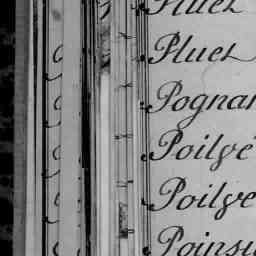 Pluet
Pluet
Pognar
Poilvé
Poilve
Poinsi